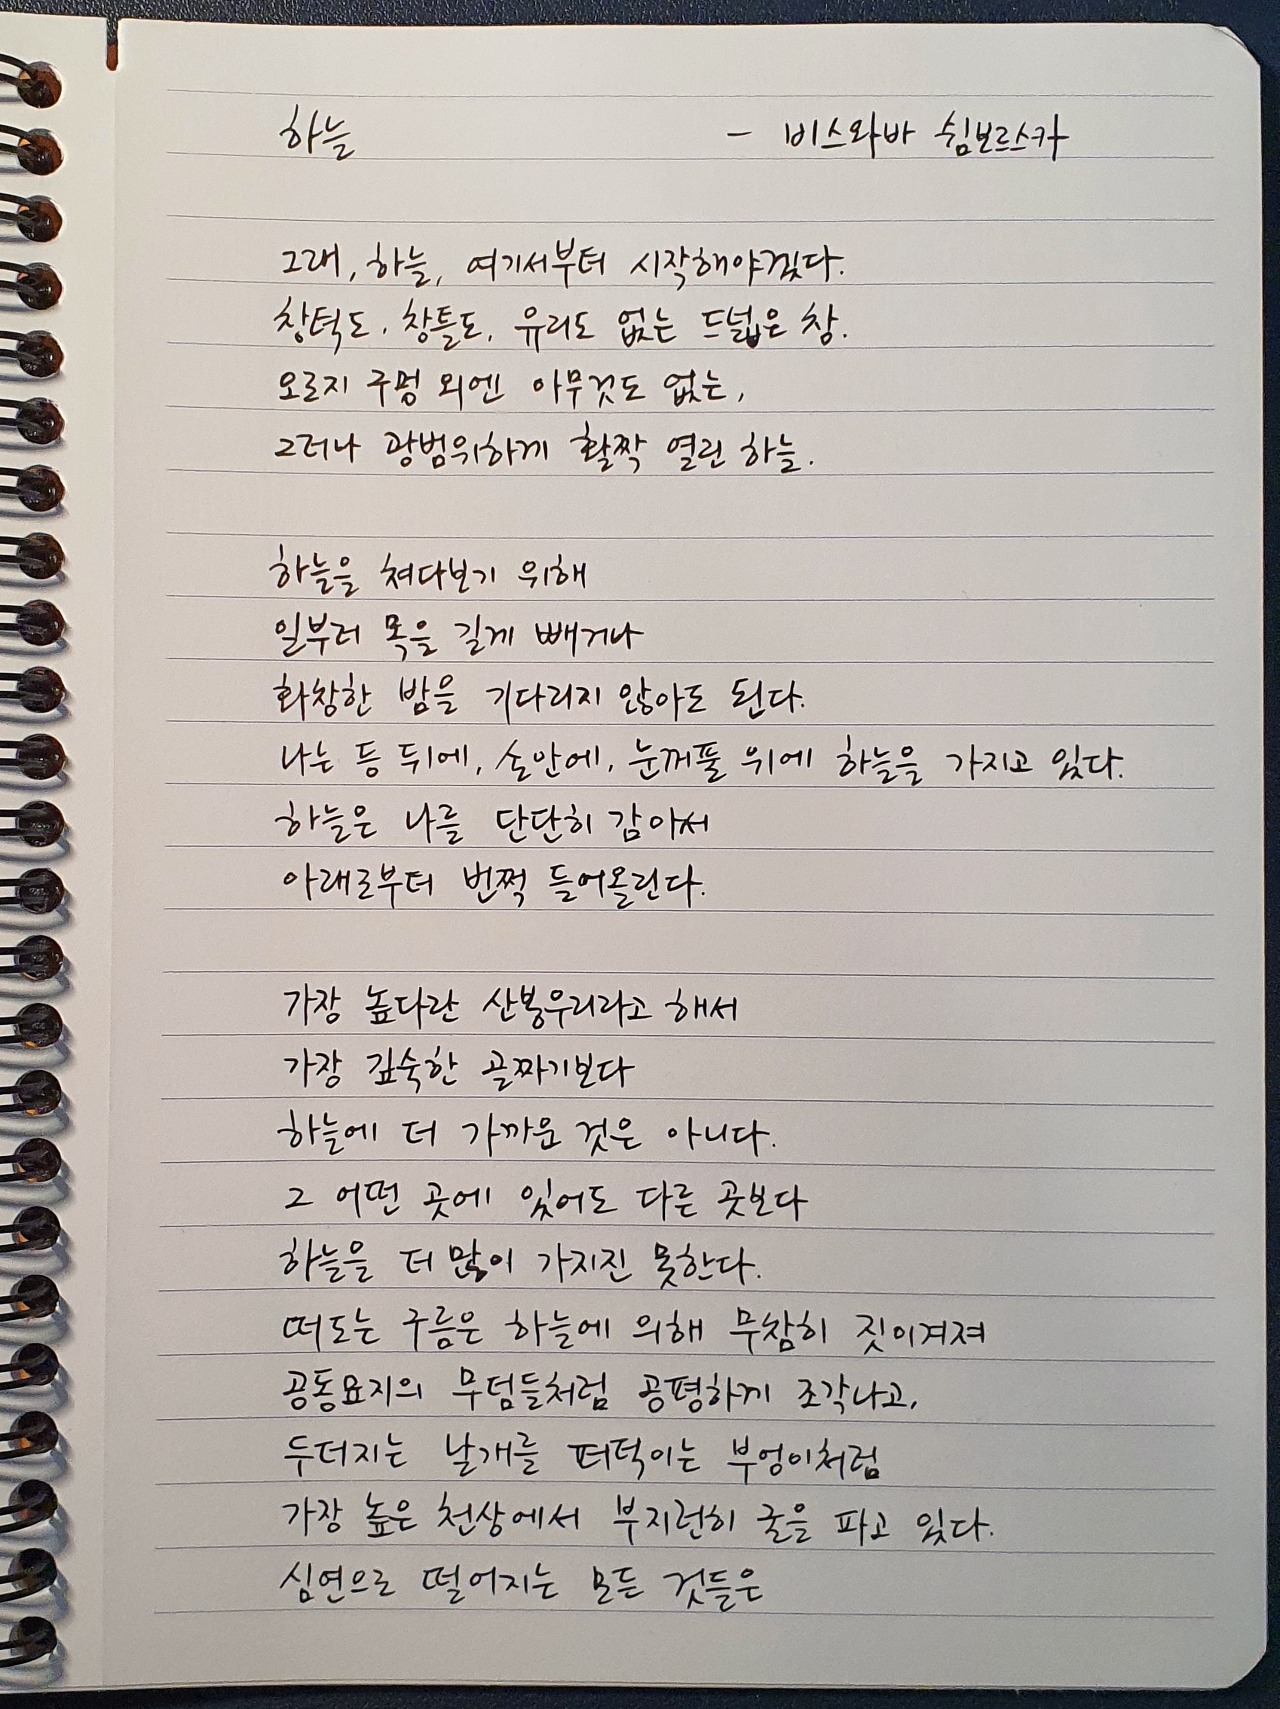 하늘 - 비스와바 쉼보르스카
그래, 하늘, 여기서부터 시작해야겠다.
창턱도, 창틀도, 유리도 없는 드넓은 창.
오로지 구멍 외엔 아무것도 없는,
그러나 광범위하게 활짝 열린 하늘.
하늘을 쳐다보기 위해
일부러 목을 길게 빼거나
화창한 밤을 기다리지 않아도 된다.
나는 등 뒤에, 손안에, 눈꺼풀 위에 하늘을 가지고 있다.
하늘은 나를 단단히 감아서
아래로부터 번쩍 들어올린다.
가장 높다란 산봉우리라고 해서
가장 깊숙한 골짜기보다
하늘에 더 가까운 것은 아니다.
그 어떤 곳에 있어도 다른 곳보다
하늘을 더 많이 가지진 못한다.
떠도는 구름은 하늘에 의해 무참히 짓이겨져
공동묘지의 무덤들처럼 공평하게 조각나고,
두더지는 날개를 퍼덕이는 부엉이처럼
가장 높은 천상에서 부지런히 굴을 파고 있다.
심연으로 떨어지는 모든 것들은